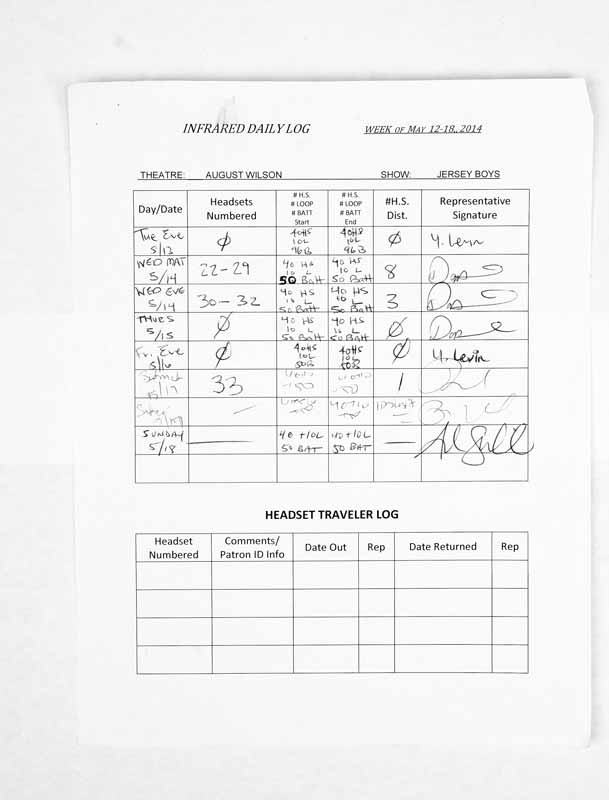 INFRARED DAILY LOG WEEK OF MAY 12-18, 2014
THEATRE: AUGUST WILSON SHOW: JERSEY BOYS
Day/Date
Headsets
Numbered
# H.S.
# LOOP
# BATT
Start
# H.S.
# LOOP
# BATT
End
#H.S.
Dist.
Representative
Signature
Tue Eve
5/13
Ø
40HS
10L
96B
40HS
10L
96B
Ø
Y. Levin
WED MAT
5/14
22-29
40 HS
10 L
50 Batt
40 HS
10 L
50 Batt
8
WED EVE
5/14
30-32
40 HS
10 L
50 Batt
40 HS
10 L
50 Batt
3
THURS
5/15
Ø
40 HS
10 L
50 Batt
40 HS
10 L
50 Batt
Ø
Fri. Eve
5/16
Ø
40HS
10L
50B
40HS
10L
50B
Ø
Y. Levin
5/17
33
1
SUNDAY
5/18
40 +10L
50 BAT
40+10L
50 BAT
HEADSET TRAVELER LOG
Headset
Numbered
Comments/
Patron ID Info
Date Out
Rep
Date Returned
Rep